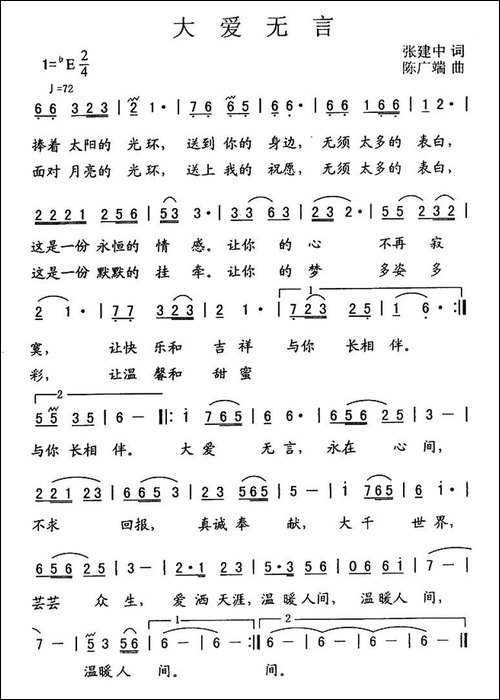 大 爱 无 言
1=♭E 2/4
张建中 词
陈广端 曲
♩=72
6 6 3 2 3 | 2 1· | 7 6 6 5 | 6 6· | 6 6 1 6 6 | 1 2·
捧着 太阳的 光环, 送到 你的 身边, 无须 太多的 表白,
面对 月亮的 光环, 送上 我的 祝愿, 无须 太多的 表白,
2 2 2 1 2 5 6 | 5 3 3· | 3 2 3 3 | 1 2· | 5 5 2 3 2
这是一份 永恒的 情 感。让你 的 心 不再 寂
这是一份 默默的 挂 牵。让你 的 梦 多姿 多
2 1· | 7 7 3 2 3 | 2 2· | 7 2 3 2 5 | 1 6· :‖
寞, 让快 乐和 吉祥 与你 长相 伴。
彩, 让温 馨和 甜蜜
5 5 3 5 | 6 – ‖: i | 7 6 5 | 6 6· | 6 5 6 2 5 | 3 –
与你 长相 伴。 大 爱 无 言, 永在 心 间,
2 2 1 2 3 | 6 6 5 3 | 2 3 5 6 5 | 5 – | i | 7 6 5 | 6 6·
不求 回报, 真诚奉 献, 大 千 世 界,
6 5 6 2 5 | 3 – | 2· 1 2 3 | 5· 3 5 6 | 0 6 6 i | 7 –
芸芸 众 生, 爱 洒 天涯, 温 暖人 间, 温暖人 间,
7 – | 5 3 5 6 | 6 – | 6 – :‖ 6 – | 6 – | 6 – ‖
温暖人 间。 间。